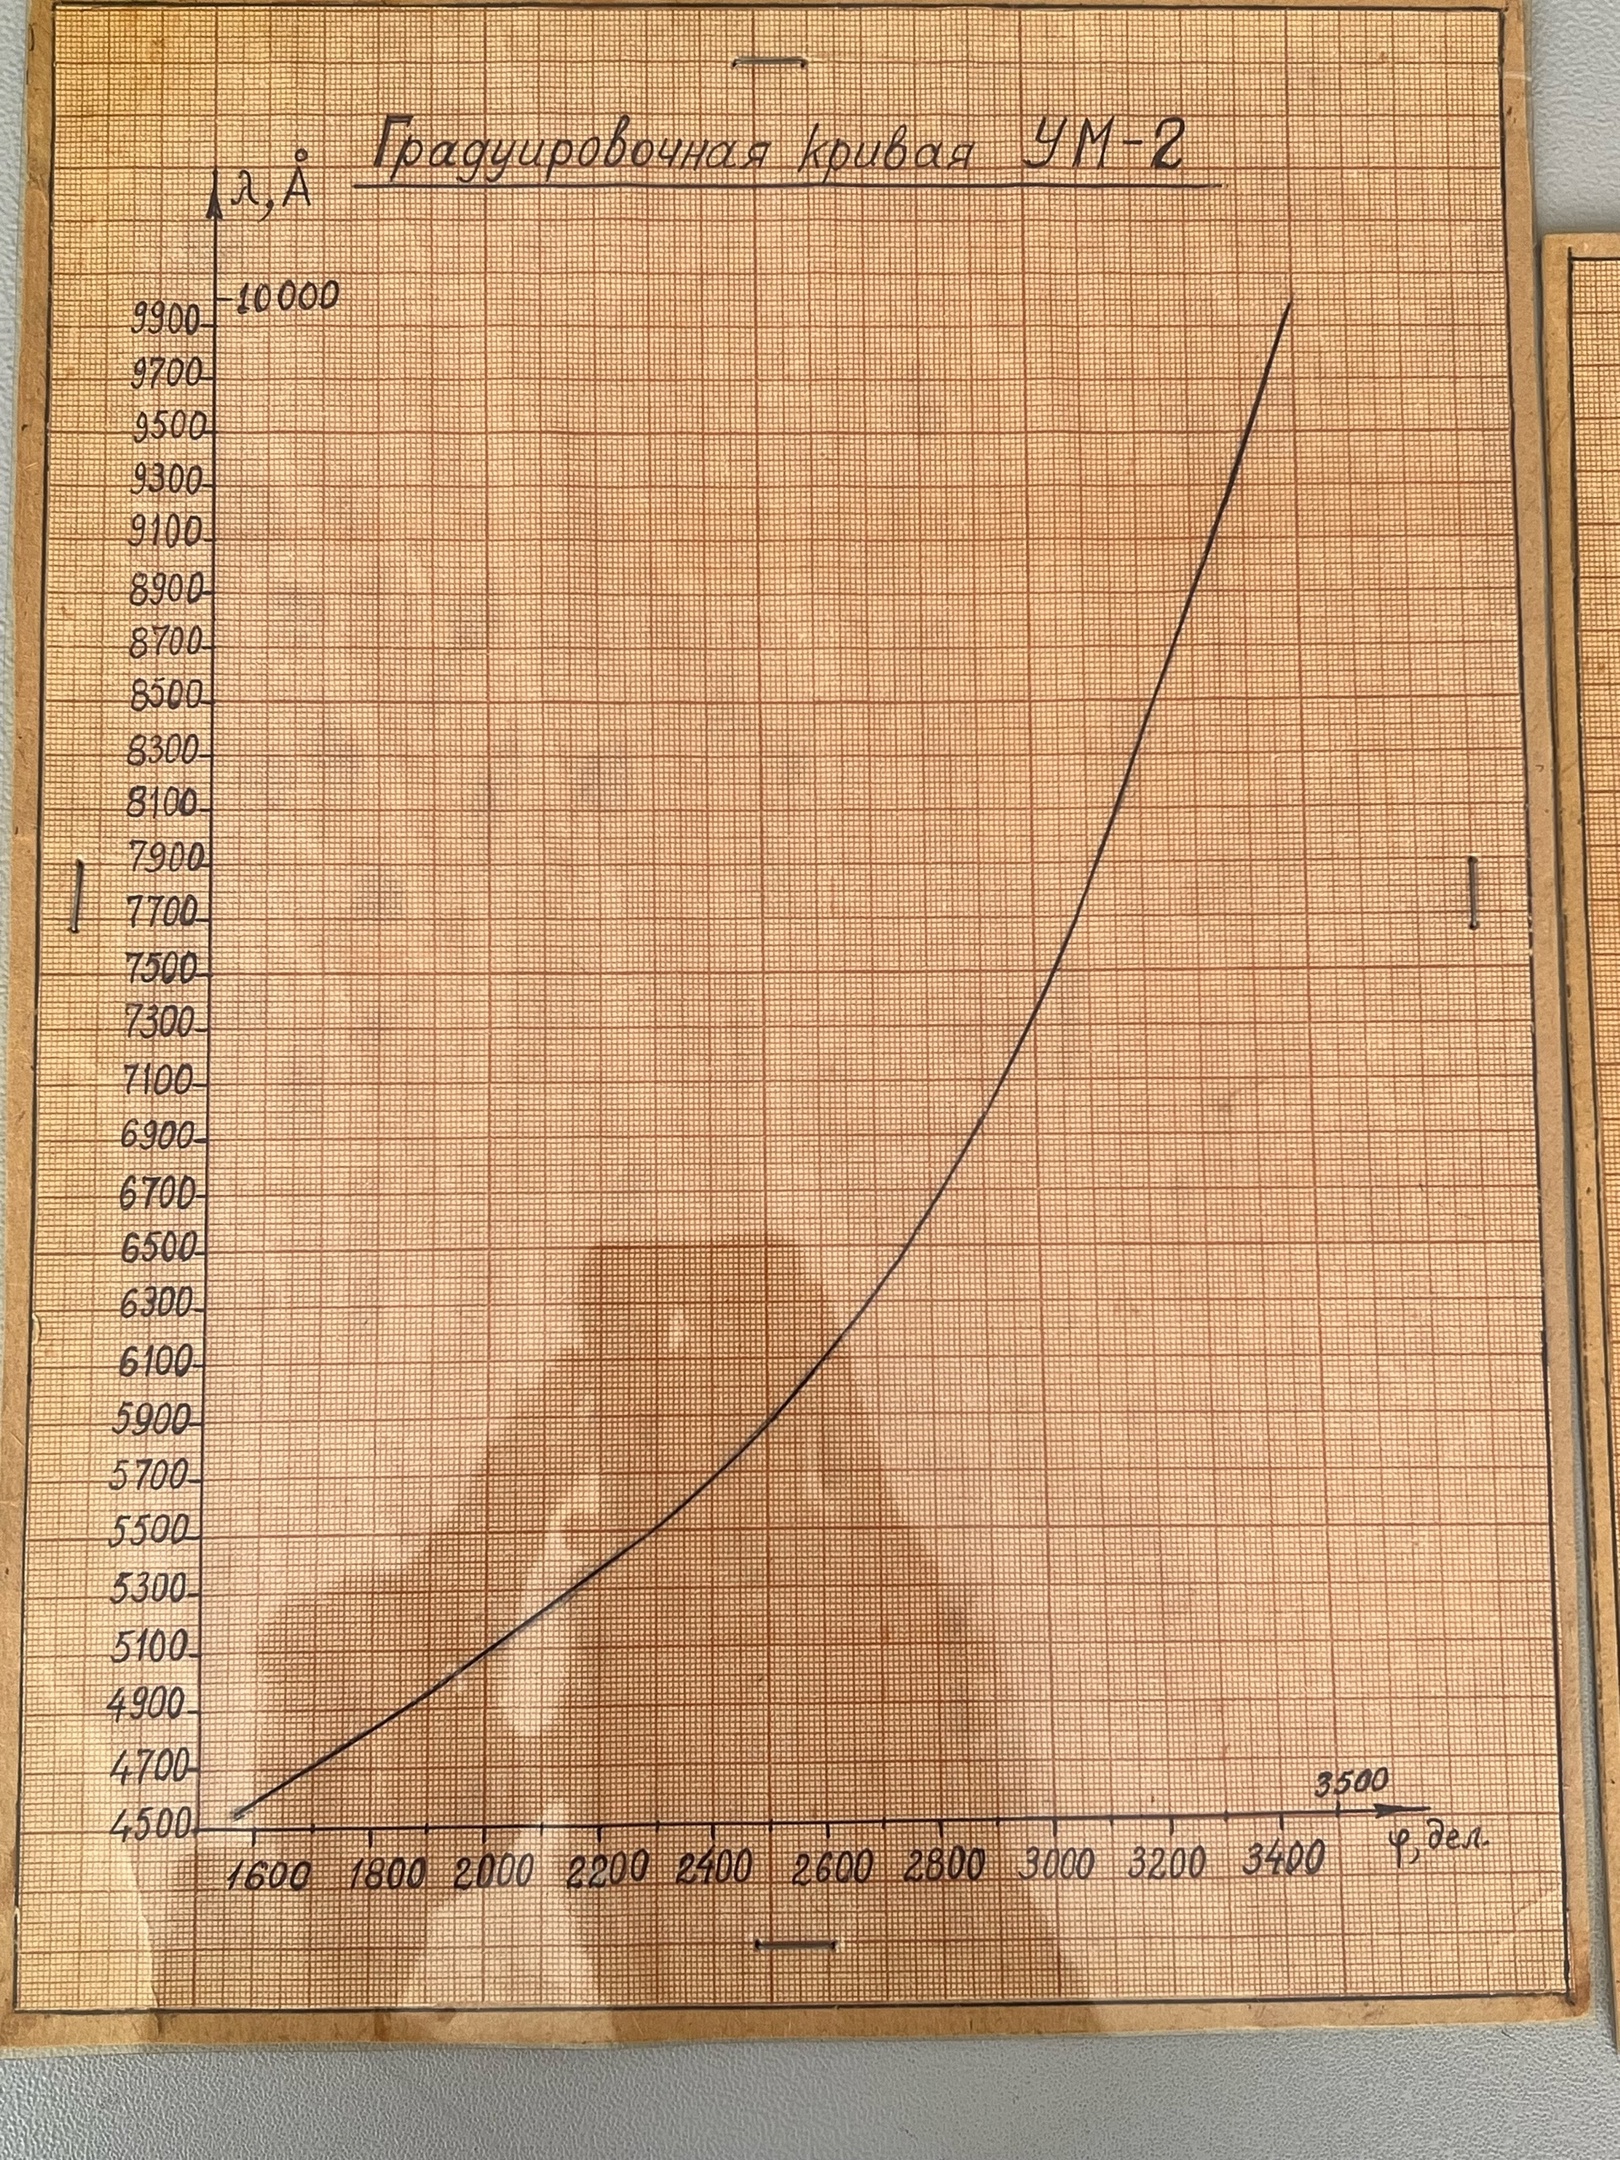 Градуировочная кривая УМ-2
λ, Å
10000
9900
9700
9500
9300
9100
8900
8700
8500
8300
8100
7900
7700
7500
7300
7100
6900
6700
6500
6300
6100
5900
5700
5500
5300
5100
4900
4700
4500
3500
1600 1800 2000 2200 2400 2600 2800 3000 3200 3400 φ, дел.